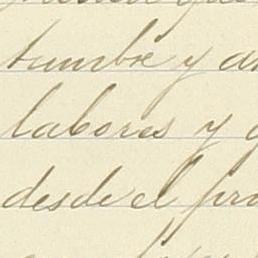 tumbre y
labores y
desde el pro